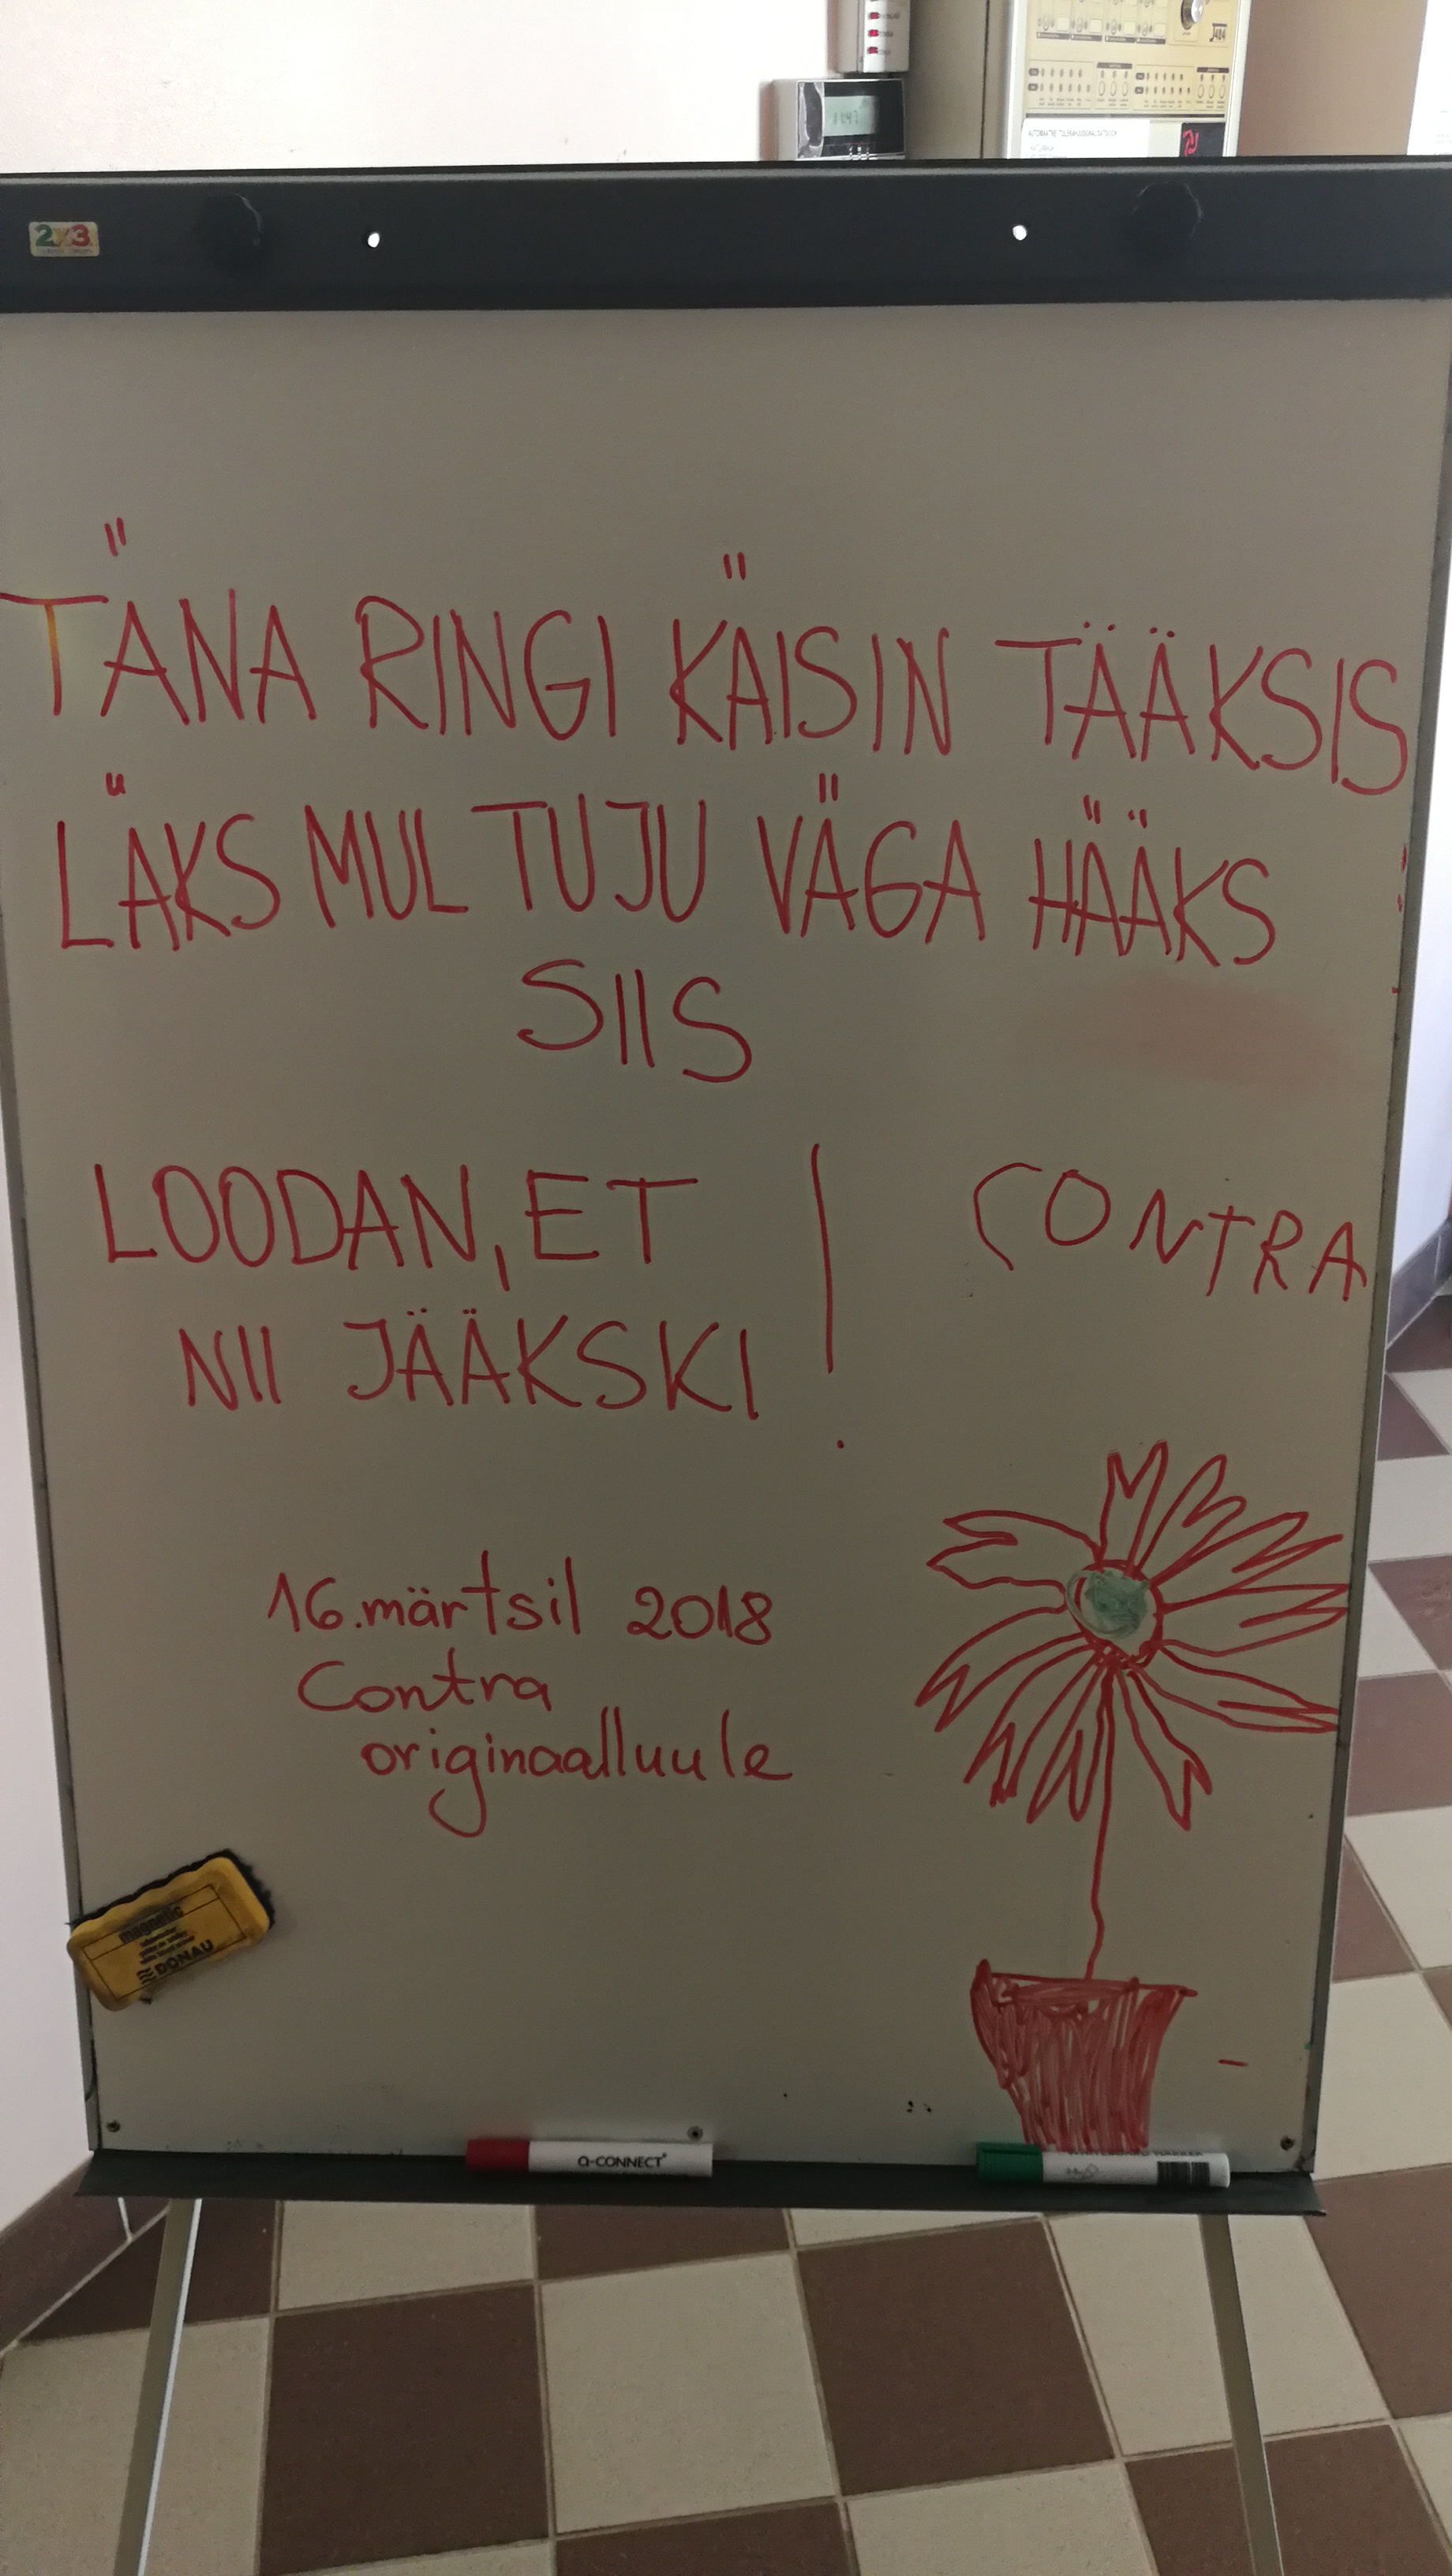 AUTOMAATNE TULEKAHJUSIGNALISATSIOON
2x3
TÄNA RINGI KÄISIN TÄÄKSIS
LÄKS MUL TUJU VÄGA HÄÄKS
SIIS
LOODAN, ET
NII JÄÄKSKI !
CONTRA
16. märtsil 2018
Contra
originaalluule
magnetic
DONAU
Q-CONNECT
WHITEBOARD MARKER